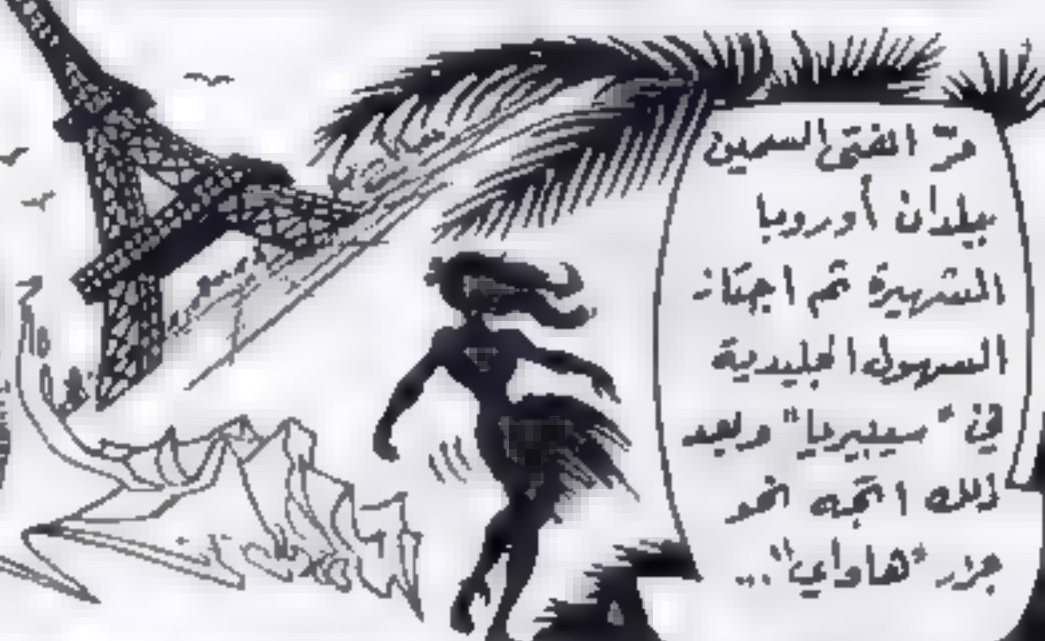 مرّ الفتى السمين
ببلدان أوروبا
الشهيرة ثم اجتاز
السهول الجليدية
في "سيبيريا" وبعد
ذلك اتجه نحو
جزر "هاواي"...